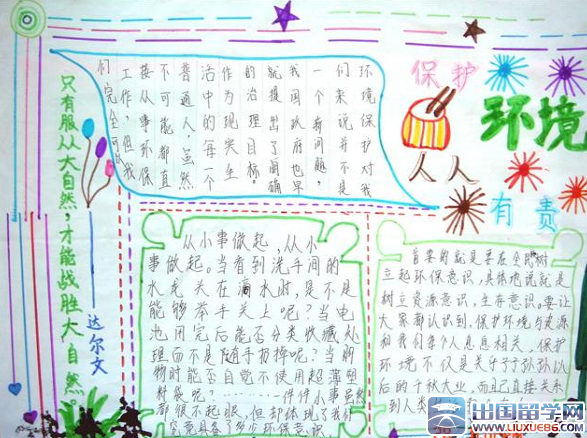 保护
环境
人人
有责
只有服从大自然，才能战胜大自然
达尔文
环境保护对我
们来说并不是
一个新问题，
我国政府也早
就提出了明确
的治理目标，
作为现实生
活中的每一个
普通人，虽然
不可能都直
接从事环保
工作，但我
们完全可以
从小事做起，从小
事做起。当看到洗手间的
水龙头在漏水时，是不是
能够举手关上呢？当电
池用完后能否分类收藏处
理而不是随手扔掉呢？当购
物时能否自觉不使用超薄塑
料袋呢？………件件小事虽然
都很不起眼，但却体现了我们
究竟具备了多少环保意识
首要的就是要在全民树
立起环保意识，具体地说就是
树立资源意识，生存意识。要让
大家都认识到，保护环境与资源
和我们每个人息息相关，保护
环境不仅是关于子子孙孙以
后的千秋大业，而且直接关系
到人类
出国留学网
www.liuxue86.com